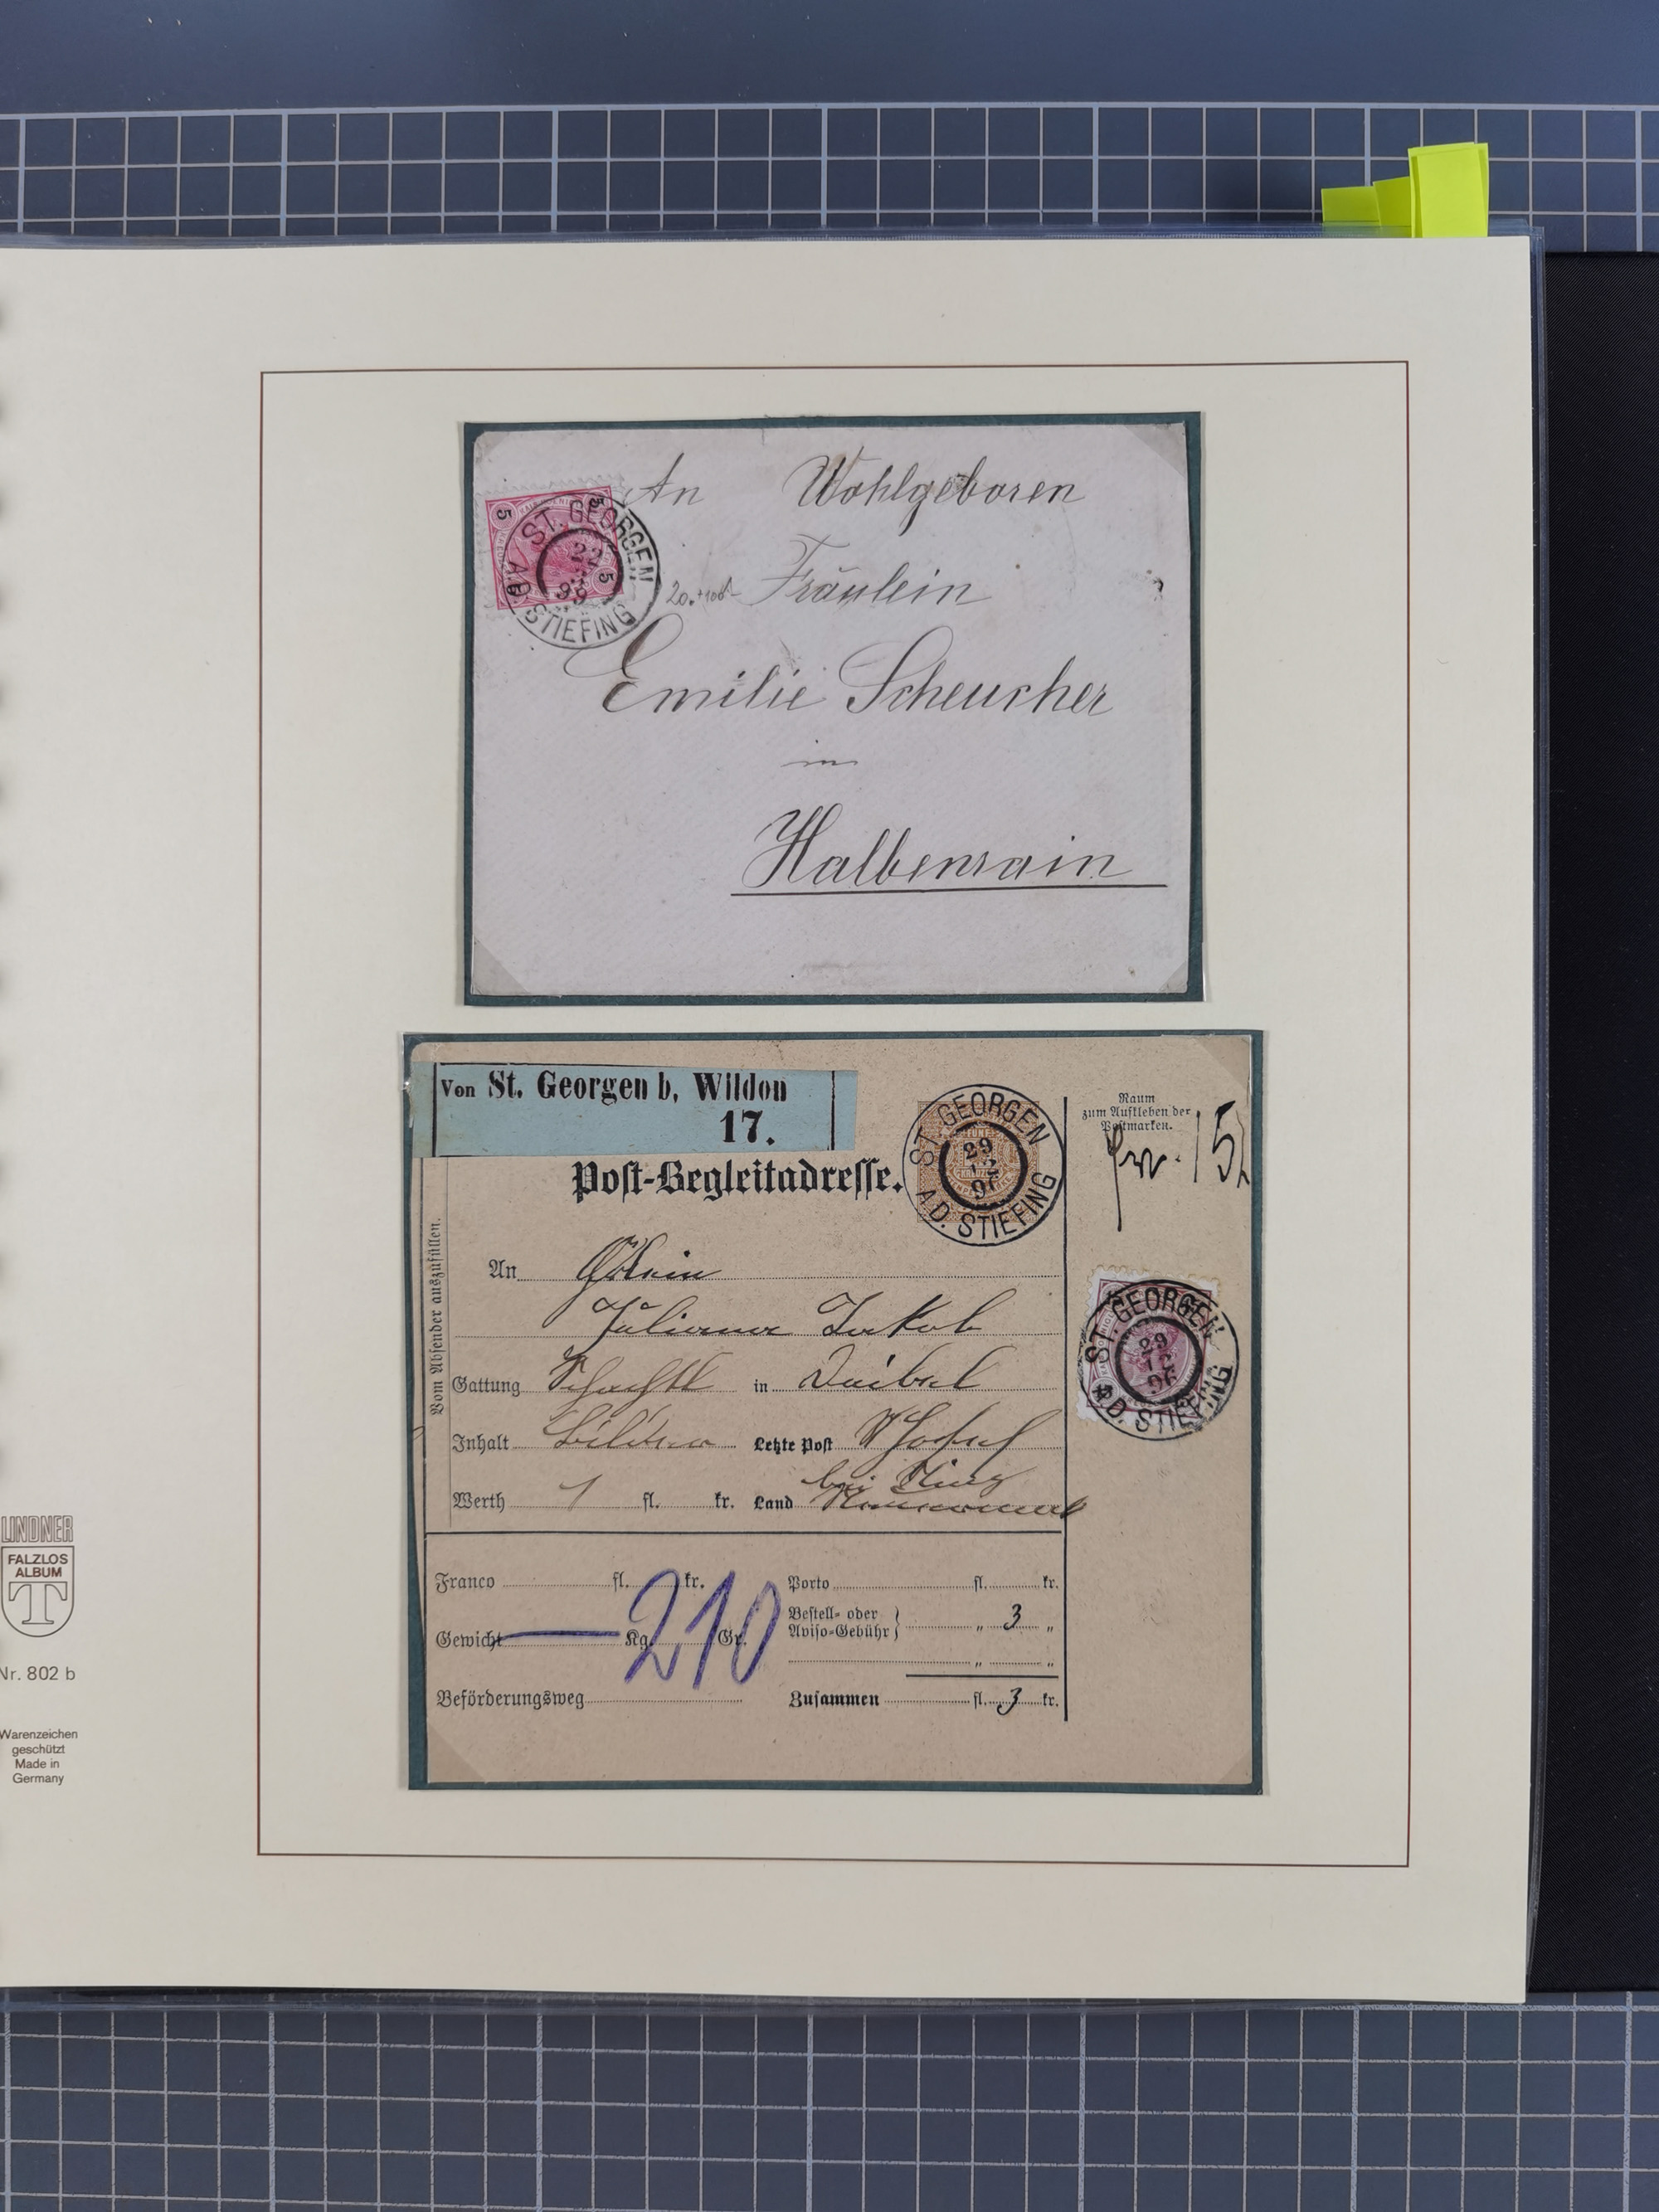 An Wohlgeboren
Fräulein
Emilie Scheucher
in
Halbenrain
5 5 5
ST. GEORGEN
22
99
A.D. STIEFING
Von St. Georgen b. Wildon
17.
Post-Begleitadresse.
ST. GEORGEN
29
12
96
A.D. STIEFING
Raum
zum Aufkleben der
Postmarken.
15
Vom Absender auszufüllen.
An
Juliana Jakob
Gattung Schachtl in
Inhalt Letzte Post
bei
Werth 1 fl. kr. Land
ST. GEORGEN
29
12
96
A.D. STIEFING
Franco fl. kr. Porto fl. kr.
210
Bestell- oder
Aviso-Gebühr } " 3 "
Gewicht Kg. Gr.
" "
Beförderungsweg Zusammen fl. 3 kr.
LINDNER
FALZLOS
ALBUM
T
Nr. 802 b
Warenzeichen
geschützt
Made in
Germany